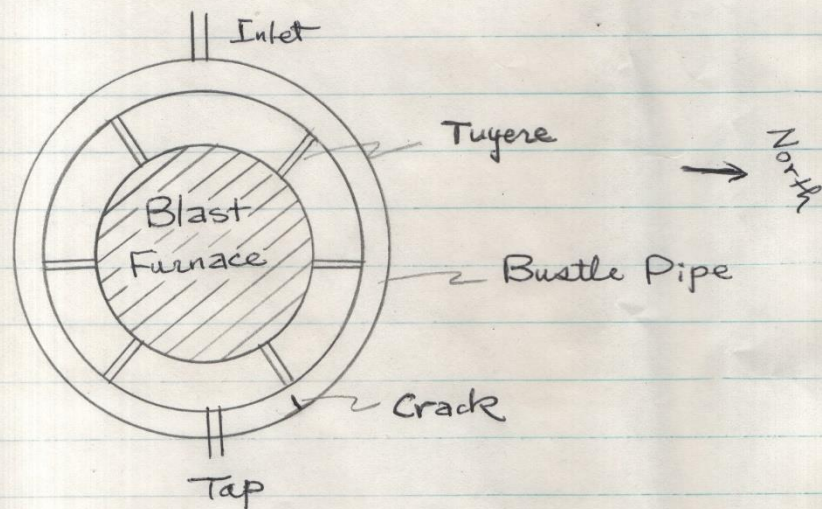 Inlet
Tuyere
North
Blast
Furnace
Bustle Pipe
Crack
Tap